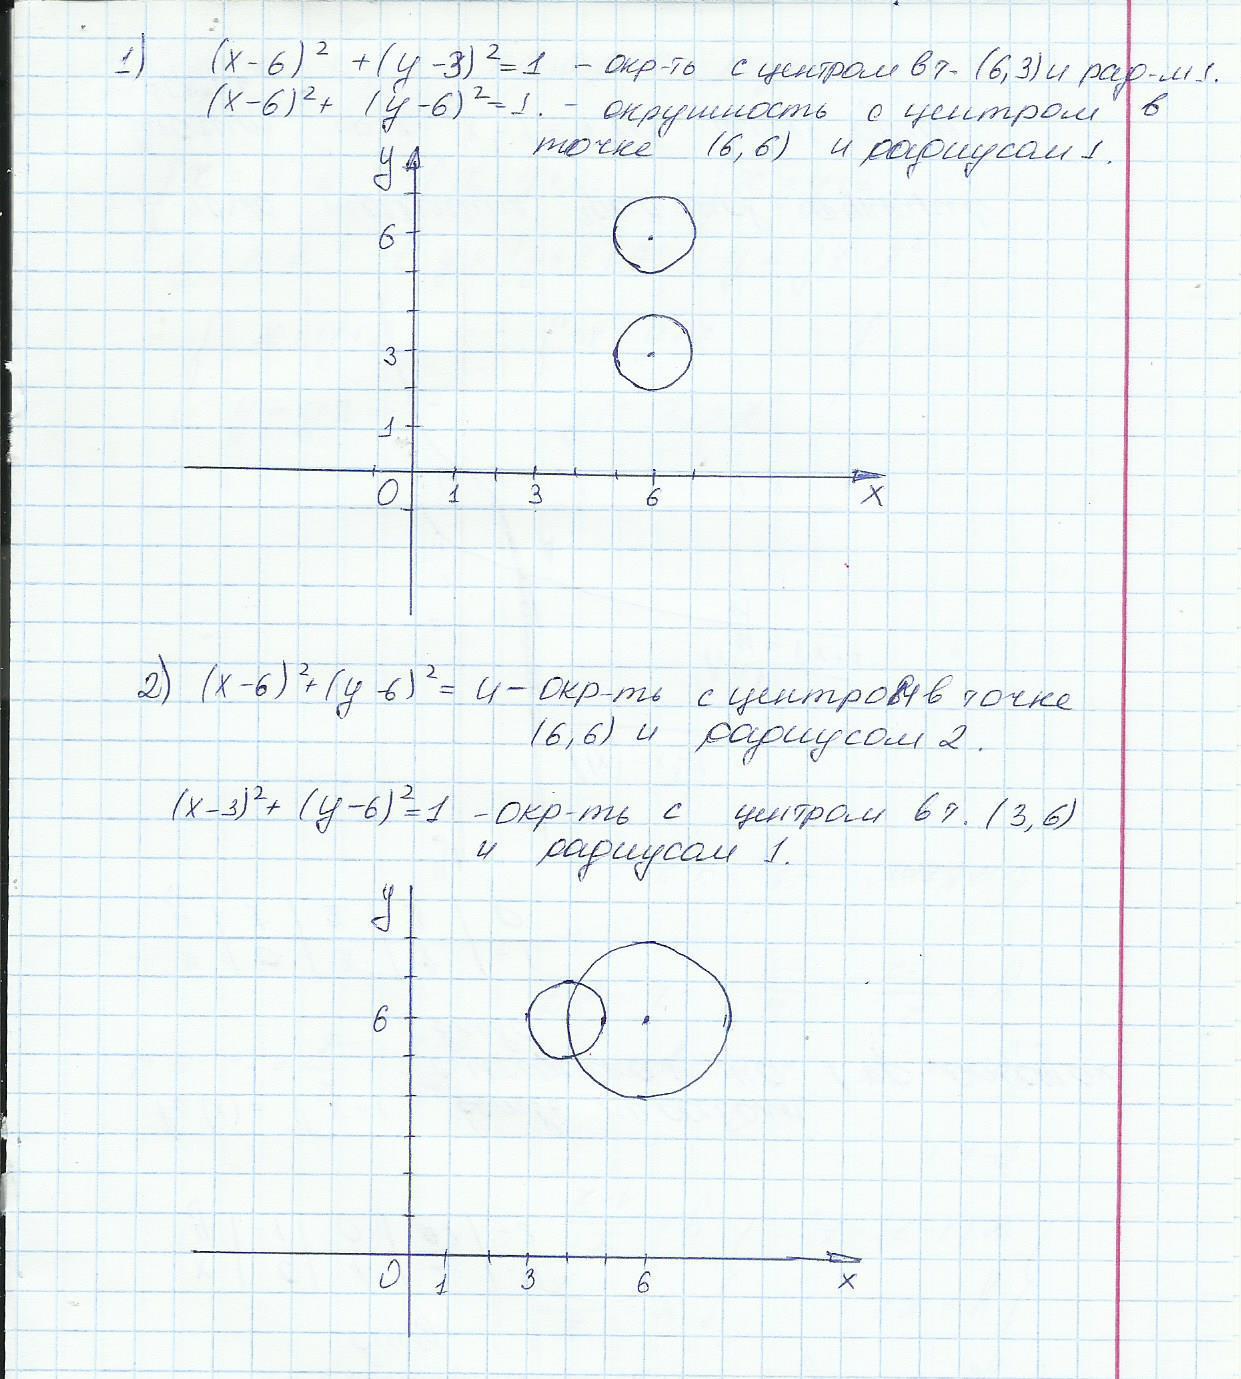 1) (x-6)² + (y-3)² = 1 - окр-ть с центром в т. (6,3) и рад-м 1.
(x-6)² + (y-6)² = 1. - окрушность с центром в
точке (6,6) и радиусом 1.
y
6
3
1
0 1 3 6 x
2) (x-6)² + (y-6)² = 4 - окр-ть с центром в точке
(6,6) и радиусом 2.
(x-3)² + (y-6)² = 1 - окр-ть с центром в т. (3,6)
и радиусом 1.
y
6
0 1 3 6 x